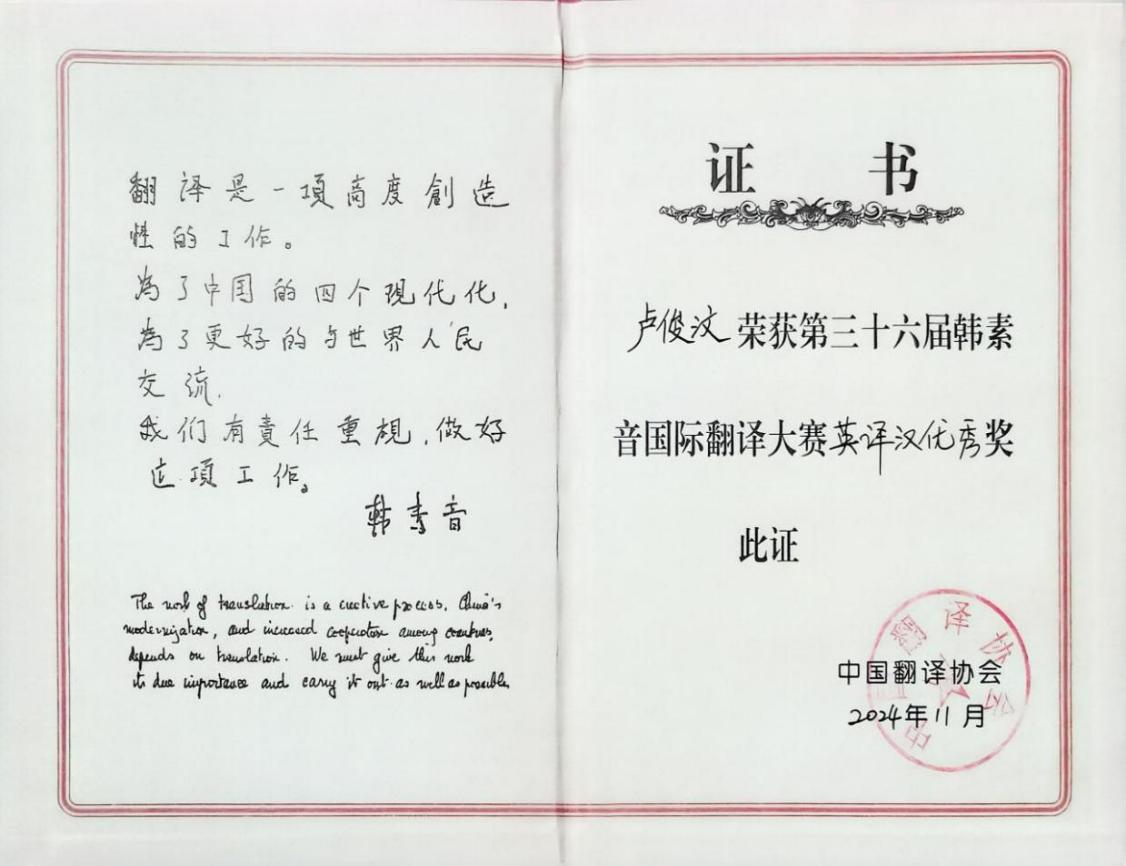 翻譯是一項高度創造
性的工作。
為了中国的四个現代化,
為了更好的与世界人民
交流.
我们有責任重視,做好
这項工作。
韩素音
The work of translation is a creative process. China's
modernization, and increased cooperation among countries,
depends on translation. We must give this work
its due importance and carry it out as well as possible.
证 书
卢俊汶荣获第三十六届韩素
音国际翻译大赛英译汉优秀奖
此证
中国翻译协会
2024年11月
中国翻译协会